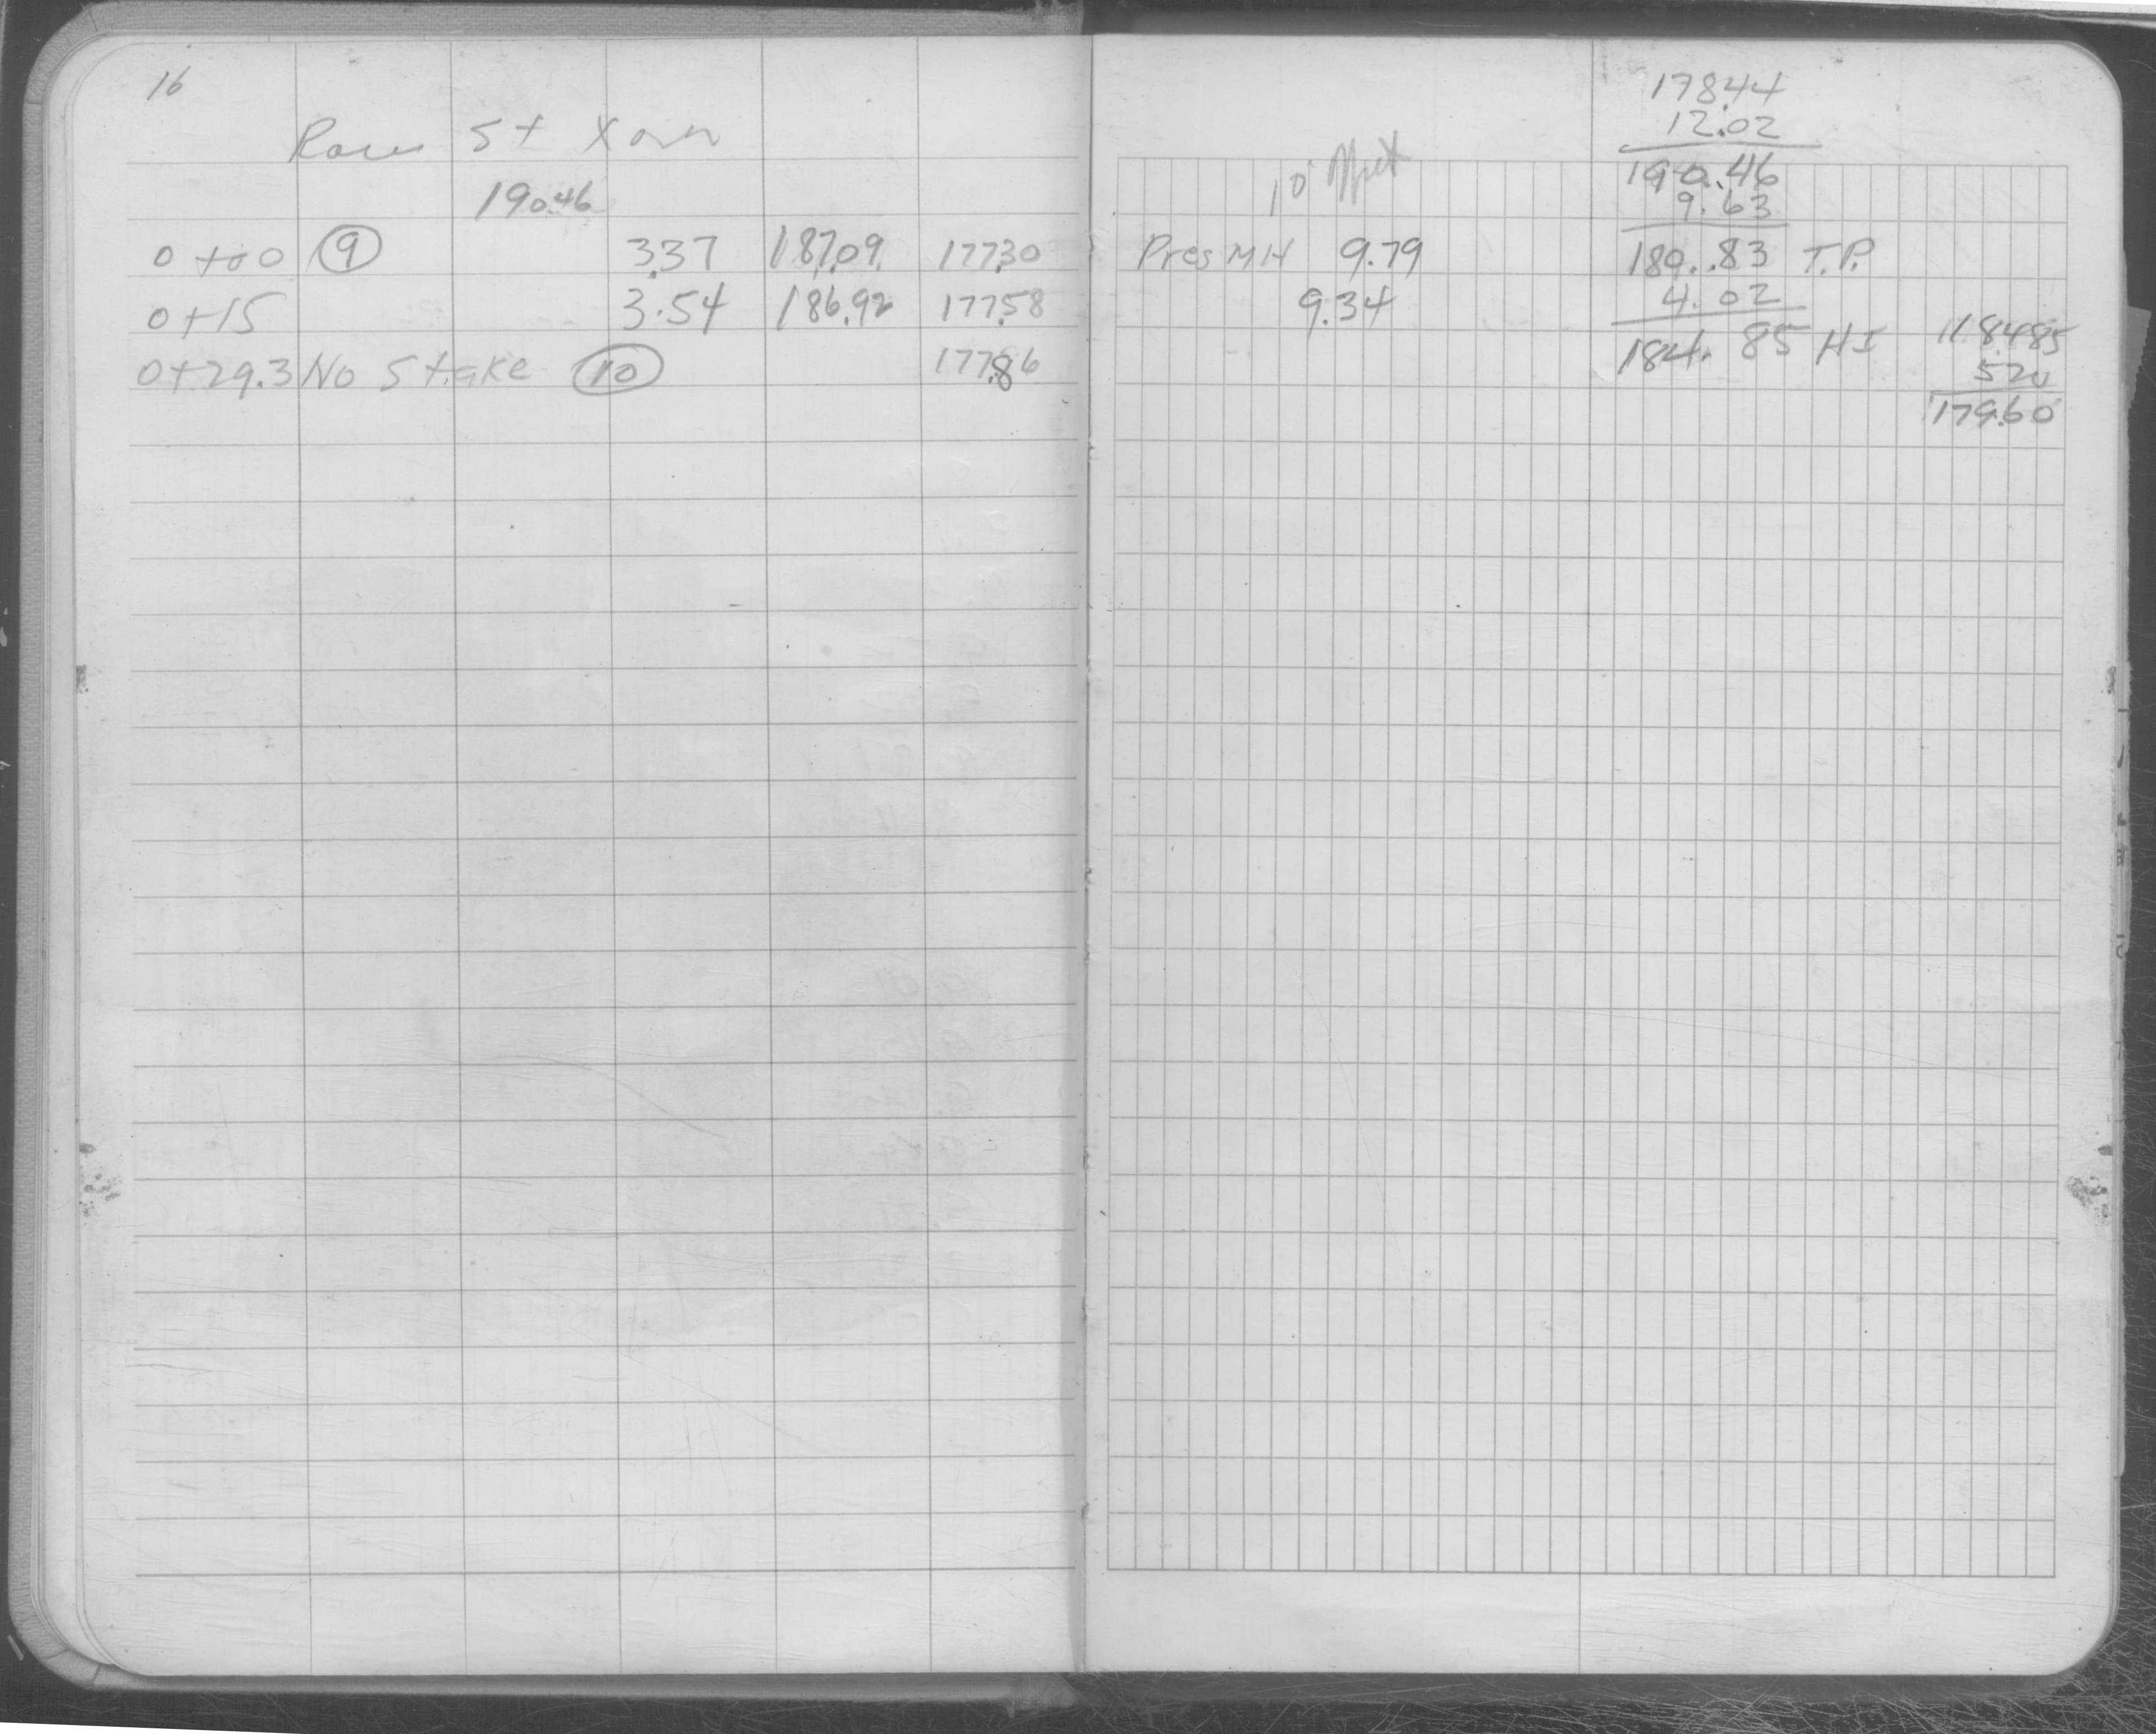 16
St
190.46
0+00 9 3.37 187.09 177.30
0+15 3.54 186.92 177.58
0+29.3 No Stake 10 177.86
10'
Pres MH 9.79
9.34
178.44
12.02
190.46
9.63
180.83 T.P.
4.02
184.85 HI
179.60